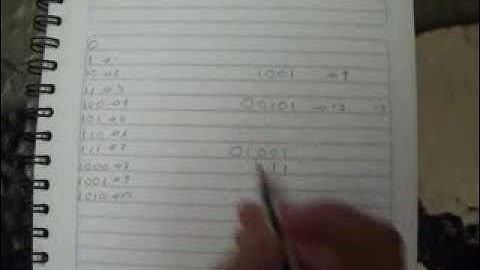 0
1 → 1
10 → 2
11 → 3
100 → 4
101 → 5
110 → 6
111 → 7
1000 → 8
1001 → 9
1010 → 10
1001 → 9
00101 →
01001
111